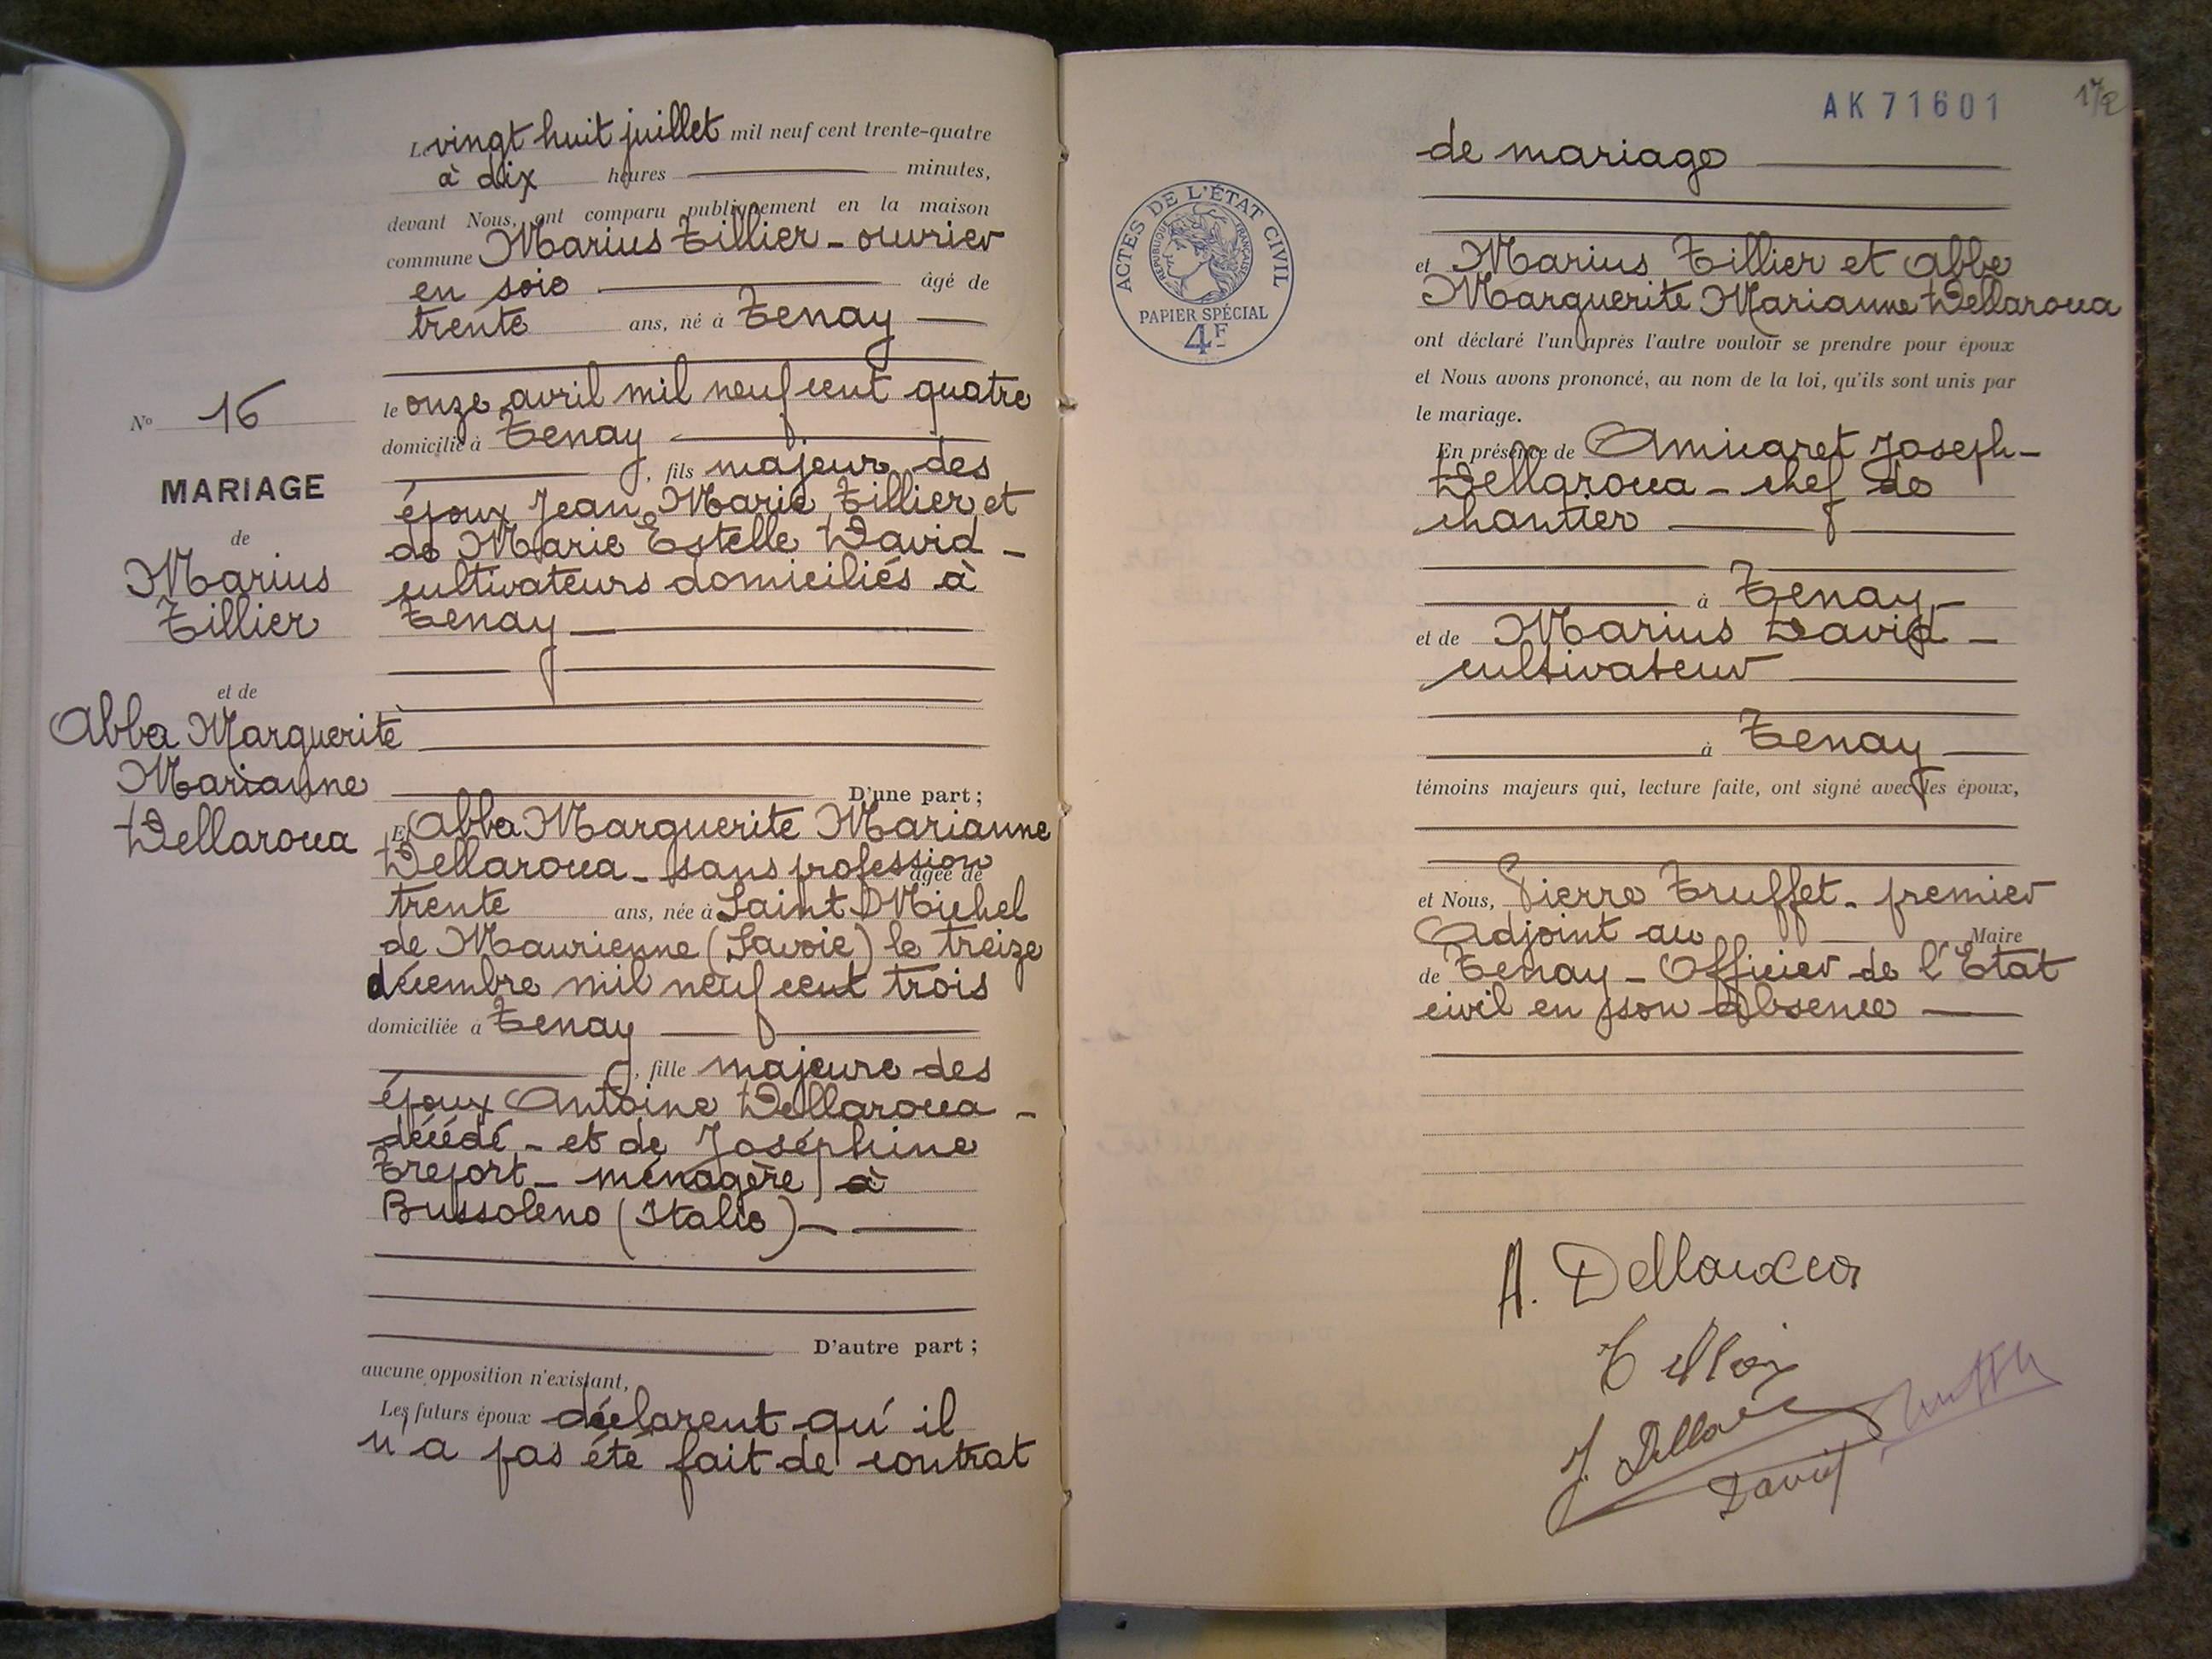 Le vingt huit juillet mil neuf cent trente-quatre
à dix heures minutes,
devant Nous, ont comparu publiquement en la maison
commune Marius Tillier - ouvrier
en soie âgé de
trente ans, né à Tenay
le onze avril mil neuf cent quatre
domicilié à Tenay
, fils majeur des
époux Jean Marie Tillier et
de Marie Estelle David -
cultivateurs domiciliés à
Tenay
No 16
MARIAGE
de
Marius
Tillier
et de
Abba Marguerite
Marianne
Dellaroca
D'une part ;
Et Abba Marguerite Marianne
Dellaroca - sans profession
âgée de
trente ans, née à Saint Michel
de Maurienne (Savoie) le treize
décembre mil neuf cent trois
domiciliée à Tenay
, fille majeure des
époux Antoine Dellaroca -
décédé - et de Joséphine
- ménagère à
Bussoleno (Italie) -
D'autre part ;
aucune opposition n'existant,
Les futurs époux déclarent qu'il
n'a pas été fait de contrat
AK 71601
ACTES DE L'ÉTAT CIVIL
RÉPUBLIQUE FRANÇAISE
PAPIER SPÉCIAL
4F
de mariage
et Marius Tillier et Abba
Marguerite Marianne Dellaroca
ont déclaré l'un après l'autre vouloir se prendre pour époux
et Nous avons prononcé, au nom de la loi, qu'ils sont unis par
le mariage.
En présence de Joseph -
Dellaroca - chef de
chantier
à Tenay -
et de Marius David -
cultivateur
à Tenay
témoins majeurs qui, lecture faite, ont signé avec les époux,
et Nous, Pierre Truffet - premier
Adjoint au Maire
de Tenay - Officier de l'Etat
civil en son absence
A. Dellaroca
J. Dellaroca
David